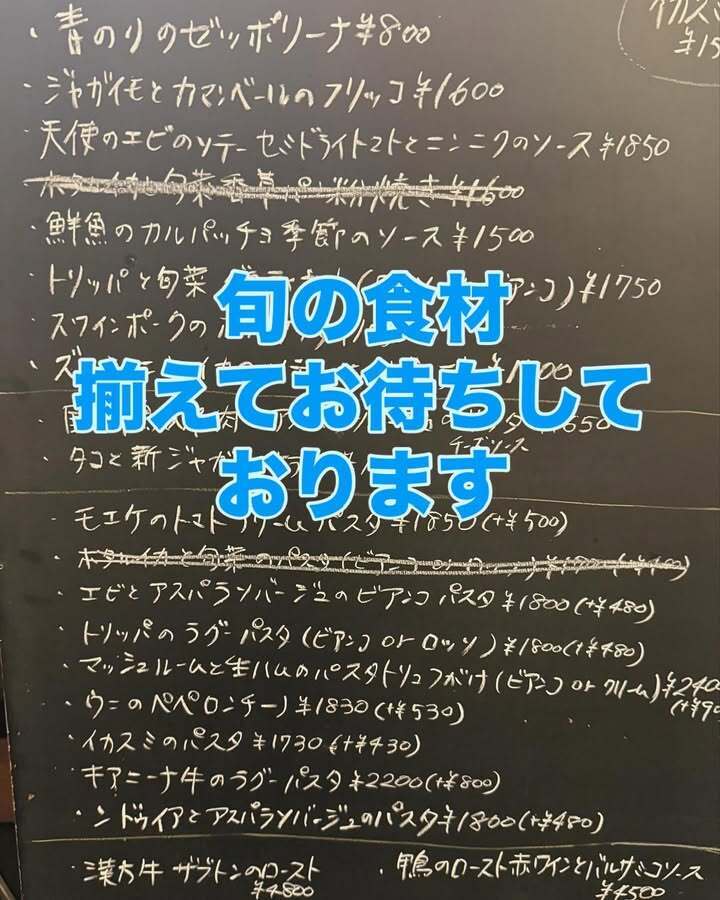 イカス
¥15
・青のりのゼッポリーナ¥800
・ジャガイモとカマンベールのフリッコ¥1600
・天使のエビのソテー セミドライトマトとニンニクのソース¥1850
旬菜香草パン粉焼き¥1600
・鮮魚のカルパッチョ季節のソース¥1500
・トリッパと旬菜 アンコ)¥1750
・スワインポークの
旬の食材
揃えてお待ちして
おります
チーズソース
・タコと新ジャガ
・モエケのトマトクリームパスタ¥1850(+¥500)
・ホタルイカと旬菜のパスタ(ビアンコ
・エビとアスパラソバージュのビアンコパスタ¥1800(+¥480)
・トリッパのラグーパスタ(ビアンコ or ロッソ)¥1800(+¥480)
・マッシュルームと生ハムのパスタトリュフがけ(ビアンコ or クリーム)¥2400
・ウニのペペロンチーノ¥1830(+¥530)
・イカスミのパスタ¥1730(+¥430)
・キアニーナ牛のラグーパスタ¥2200(+¥800)
・ンドゥイアとアスパラソバージュのパスタ¥1800(+¥480)
・漢方牛 ザブトンのロースト
¥4800
・鴨のロースト赤ワインとバルサミコソース
¥4500